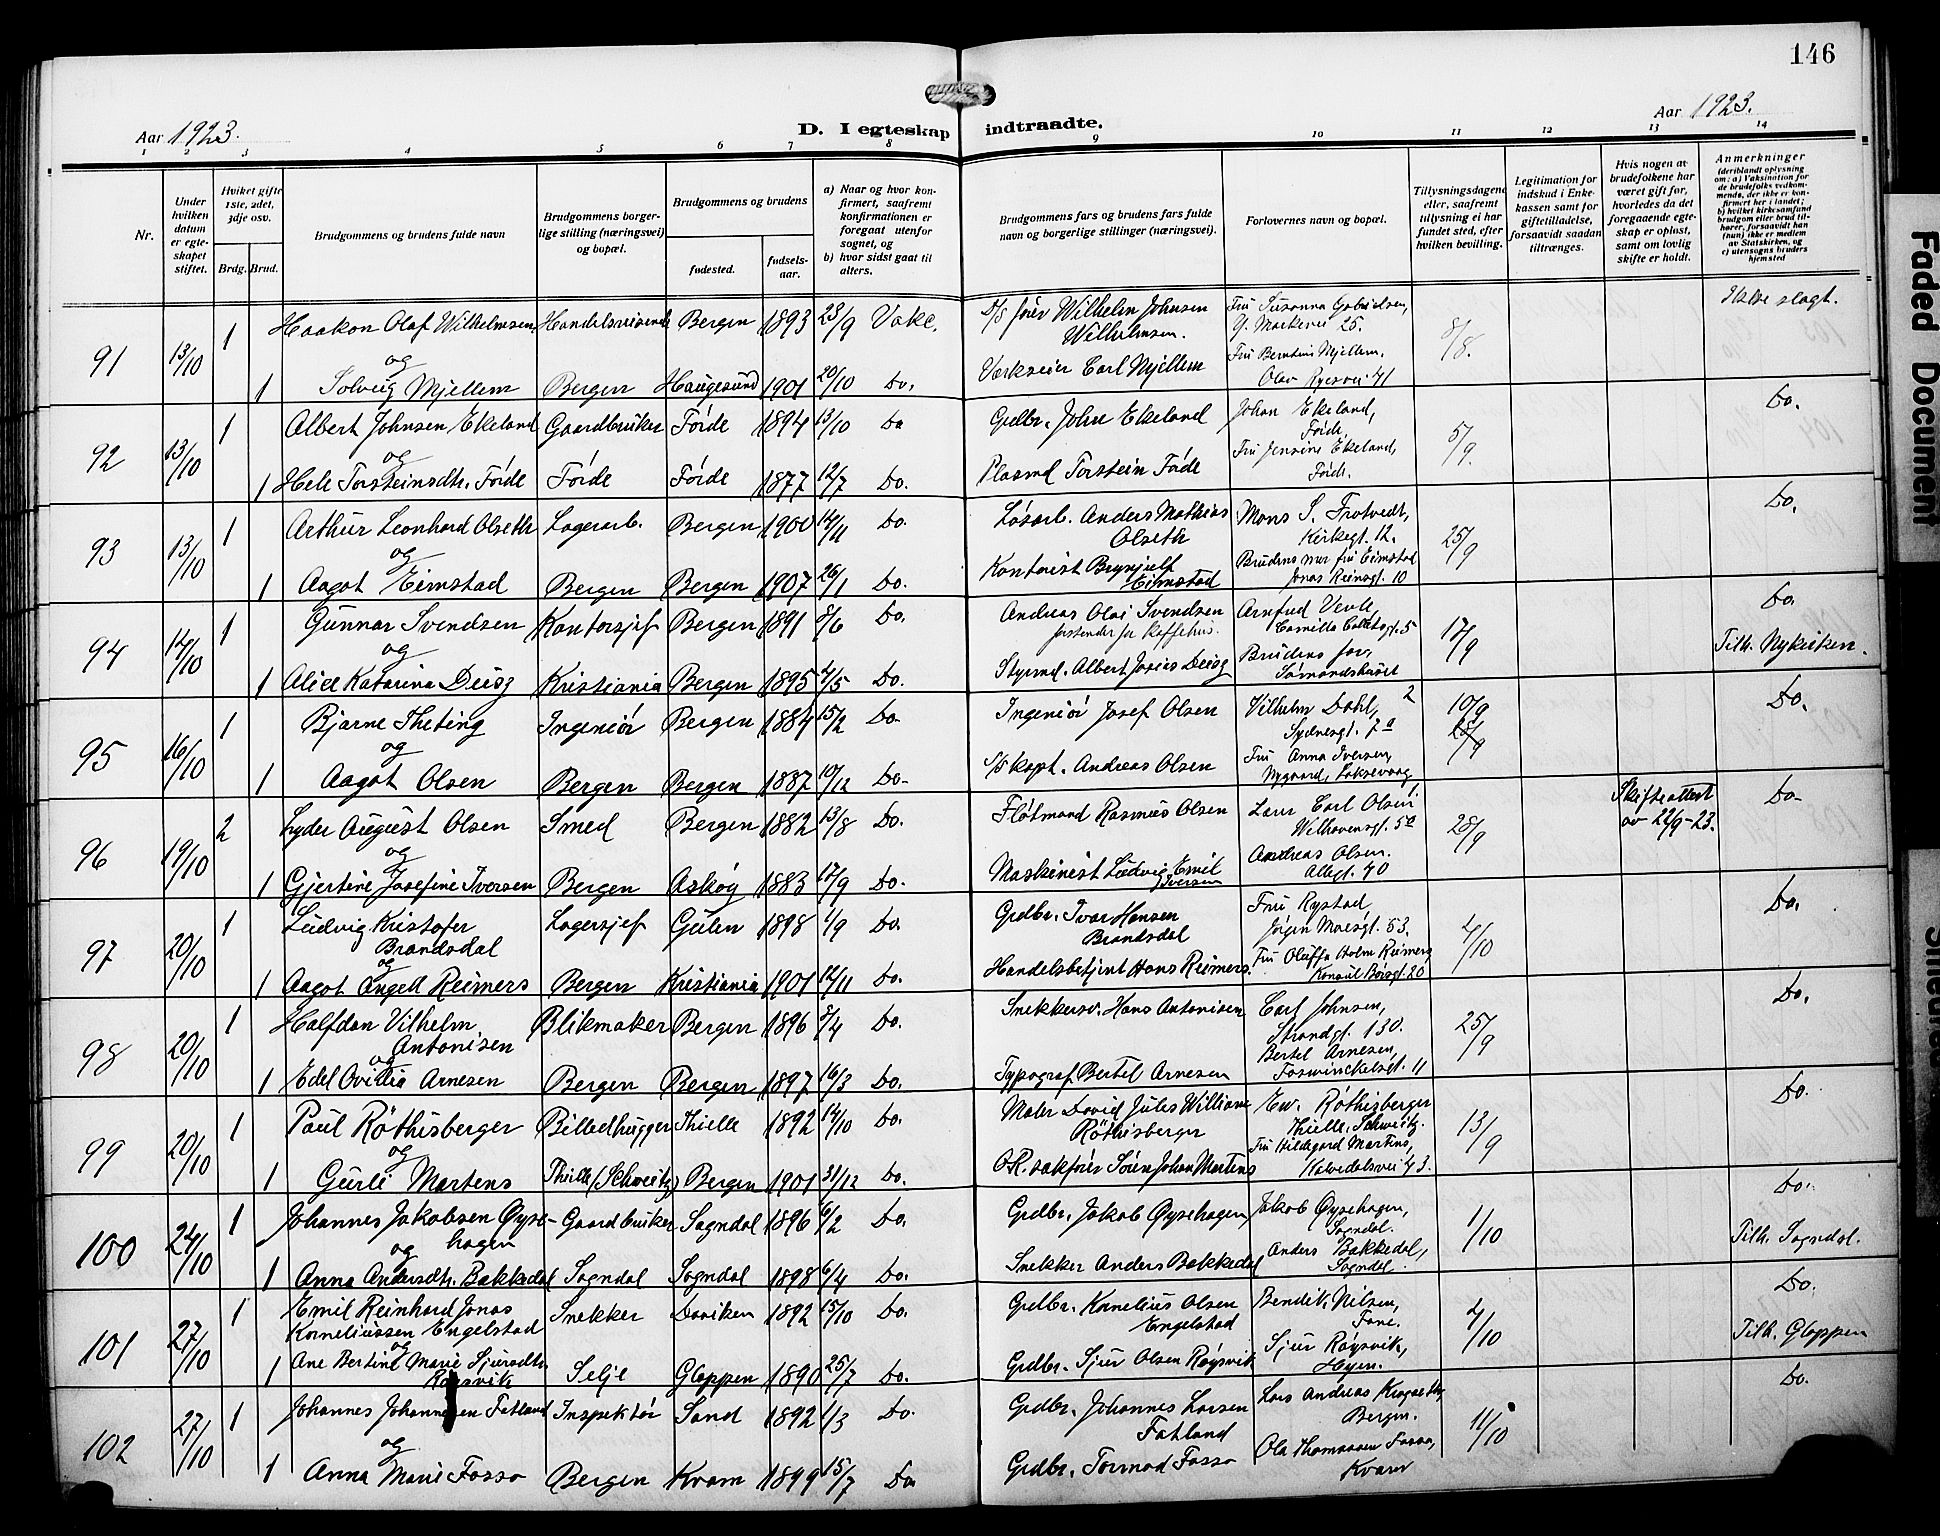 146
Aar 1923.
D. I egteskap indtraadte.
Aar 1923.
1 2 3 4 5 6 7 8 9 10 11 12 13 14
Nr.
Under hvilken datum er egteskapet stiftet.
Hvilket gifte 1ste, 2det, 3dje osv.
Brdg. Brud.
Brudgommens og brudens fulde navn
Brudgommens borgerlige stilling (næringsvei) og bopæl.
Brudgommens og brudens
fødested.
fødselsaar.
a) Naar og hvor konfirmert, saafremt konfirmationen er foregaat utenfor sognet, og
b) hvor sidst gaat til alters.
Brudgommens fars og brudens fars fulde navn og borgerlige stillinger (næringsvei).
Forlovernes navn og bopæl.
Tillysningsdagene eller, saafremt tillysning ei har fundet sted, efter hvilken bevilling.
Legitimation for indskud i Enkekassen samt for giftetilladelse, forsaavidt saadan tiltrænges.
Hvis nogen av brudefolkene har været gift før, hvorledes da det foregaaende egteskap er opløst, samt om lovlig skifte er holdt.
Anmerkninger
(deriblandt oplysning om: a) Vaksination for de brudefolks vedkommende, der ikke er konfirmert her i landet; b) hvilket kirkesamfund brudgom eller brud tilhører, forsaavidt han (hun) ikke er medlem av Statskirken, og c) utensogns bruders hjemsted
91 13/10 1 Haakon Olaf Wilhelmsen Handelsreisende Bergen 1893 23/9 Vake. D/S fører Wilhelm Johnsen Wilhelmsen. Fru Susanna Gabrielsen, Y. Markevei 25. 8/8. Ikke slegt.
og
1 Solveig Mjellem Bergen Haugesund 1901 20/10 Do. Verkseier Carl Mjellem Fru Berntine Mjellem, Olav Ryesvei 41
92 13/10 1 Albert Johnsen Ekeland Gaardbruker Førde 1894 13/10 Do Grdbr. John Ekeland Johan Ekeland, Førde 5/9. Do.
og
1 Hele Torsteinsdtr. Førde Førde Førde 1877 12/7 Do. Plasmd Torstein Førde Fru Jensine Ekeland, Førde.
93 13/10 1 Arthur Leonhard Olseth Lagerarb. Bergen 1900 14/11 Do. Løsarb. Anders Mathias Olseth Mons S. Frotvedt, Kirkegt. 12. 25/9 Do.
og
1 Aagot Eimstad Bergen Bergen 1907 26/1 Do. Kontorist Brynjulf Eimstad Brudens mor fru Eimstad Jonas Reinsgt. 10
94 14/10 1 Gunnar Svendsen Kontorsjef Bergen 1891 8/6 Do. Andreas Olai Svendsen forstander for kaffehus. Arnfred Vevle, Camilla Colletsgt. 5 17/9 Do.
og
1 Alice Katarina Deisz Kristiania Bergen 1895 2/5 Do. Styrmd. Albert Josias Deisz Brudens far, Sømandshuset Tilh. Nykirken.
95 16/10 1 Bjarne Theting Ingeniør Bergen 1884 15/2 Do. Ingeniør Josef Olsen Vilhelm Dahl, 2 Sydnesgt. 7a 10/9 Do.
og
1 Aagot Olsen Bergen Bergen 1887 19/12 Do. S/S kapt. Andreas Olsen Fru Anna Iversen, Nygaard, Laksevaag
96 19/10 2 Lyder August Olsen Smed Bergen 1882 13/8 Do. Fløtmand Rasmus Olsen Lars Carl Olsen Welhavensgt. 5a 28/9 Skifteattest av 22/9-23. Do.
og
1 Gjertine Josefine Iversen Bergen Askøy 1883 17/9 Do. Maskinist Ludvig Emil Iversen Andreas Olsen. Allegt. 40
97 20/10 1 Ludvig Kristofer Brandsdal Lagersjef Gulen 1898 1/9 Do. Grdbr. Ivar Hansen Brandsdal Fru Rystad Jørgen Moesgt. 53. 4/10 Do.
og
1 Aagot Angell Reimers Bergen Kristiania 1901 12/11 Do. Handelsbetjent Hans Reimers. Fru Oluffa Holm Reimers Konsul Børsgt. 20
98 20/10 1 Halfdan Vilhelm Antonisen Blikmaker Bergen 1896 8/4 Do. Snekkersv. Hans Antonisen Carl Johnsen, Strandgt. 130. 25/9 Do.
og
1 Edel Ovidia Arnesen Bergen Bergen 1897 16/3 Do. Typograf Bertel Arnesen Bertel Arnesen, Foswinckelsgt. 11
99 20/10 1 Paul Röthisberger Billedhugger Thielle 1892 14/10 Do. Maler David Jules William Röthisberger Ew. Röthisberger Thielle, Schweitz. 13/9 Do.
og
1 Gurli Martens Thielle (Schweitz) Bergen 1901 31/12 Do. O.R. sakfører Søren Johan Martens Fru Hildegard Martens, Kalvedalsvei 43.
100 24/10 1 Johannes Jakobsen Øysehagen Gaardbruker Sogndal 1896 6/2 Do. Grdbr. Jakob Øysehagen, Jakob Øysehagen, Sogndal. 1/10 Do.
og
1 Anna Andersdtr. Bakkedal Sogndal Sogndal 1898 6/4 Do. Snekker Anders Bakkedal Anders Bakkedal, Sogndal. Tilh. Sogndal.
101 27/10 1 Emil Reinhard Jonas Korneliussen Engelstad Snekker Daviken 1892 15/10 Do. Grdbr. Kornelius Olsen Engelstad Bendik Nilsen, Fane. 4/10 Do.
og
1 Ane Bertine Marie Sjursdtr. Røysvik Selje Gloppen 1890 25/7 Do. Grdbr. Sjur Olsen Røysvik Sjur Røysvik, Hyen. Tilh. Gloppen
102 27/10 1 Johannes Johannesen Fatland Inspektør Sand 1892 1/3 Do. Grdbr. Johannes Larsen Fatland Lars Andreas Bergen. 11/10 Do.
og
1 Anna Marie Fosso Bergen Kvam 1899 15/7 Do Grdbr. Tormod Fosso Ola Thomassen Fosso, Kvam
Faded Document